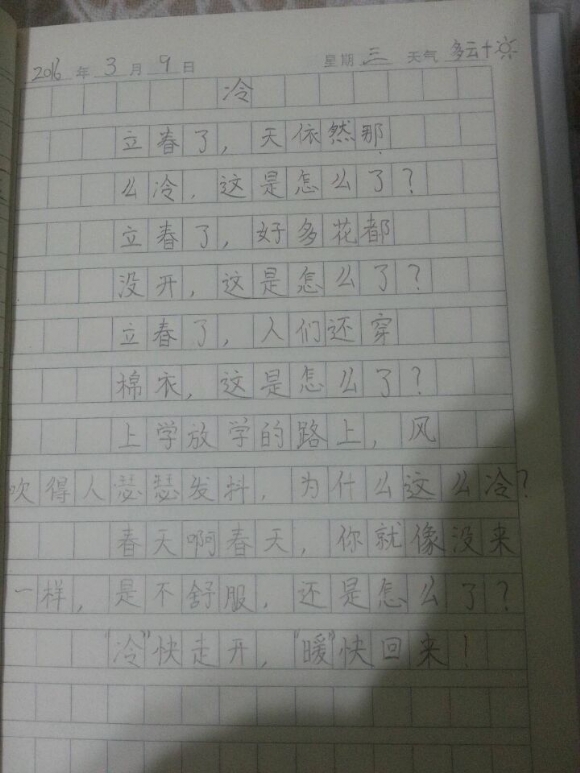 2016 年 3 月 9 日 星期 三 天气 多云+
冷
立春了，天依然那
么冷，这是怎么了？
立春了，好多花都
没开，这是怎么了？
立春了，人们还穿
棉衣，这是怎么了？
上学放学的路上，风
吹得人瑟瑟发抖，为什么这么冷？
春天啊春天，你就像没来
一样，是不舒服，还是怎么了？
“冷”快走开，“暖”快回来！